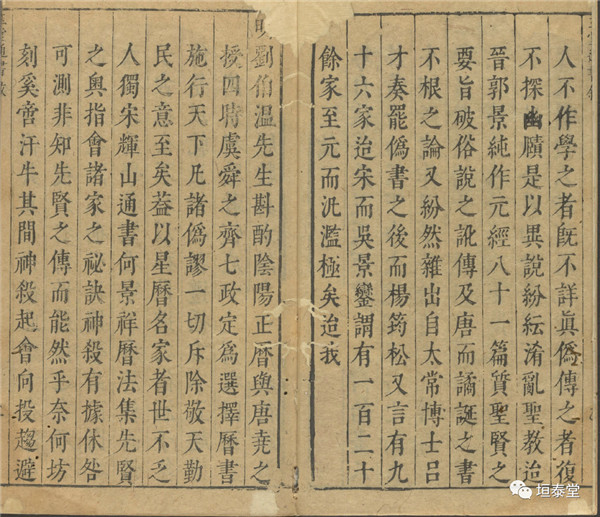 人不作學之者旣不詳眞僞傳之者復
不探幽賾是以異說紛紜淆亂聖教迨
晉郭景純作元經八十一篇質聖賢之
要旨破俗說之訛傳及唐而譎誕之書
不根之論又紛然雜出自太常博士呂
才奏罷僞書之後而楊筠松又言有九
十六家迨宋而吳景鑾謂有一百二十
餘家至元而汎濫極矣迨我
明劉伯溫先生斟酌陰陽正曆與唐堯之
授四時虞舜之齊七政定爲選擇曆書
施行天下凡諸僞謬一切斥除敬天勤
民之意至矣葢以星曆名家者世不乏
人獨宋輝山通書何景祥曆法集先賢
之奧指會諸家之祕訣神殺有據休咎
可測非知先賢之傳而能然乎奈何坊
刻奚啻汗牛其間神殺起會向投趨避
垣泰堂